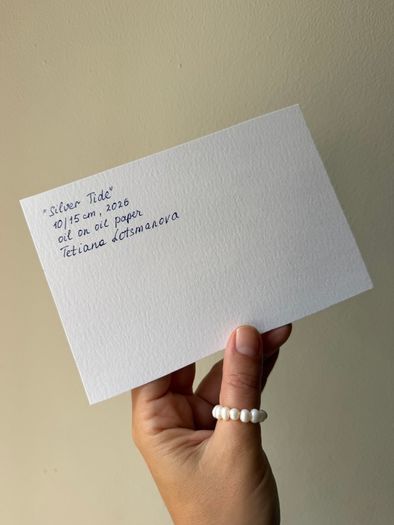 "Silver Tide"
10/15 cm, 2026
oil on oil paper
Tetiana Lotsmanova